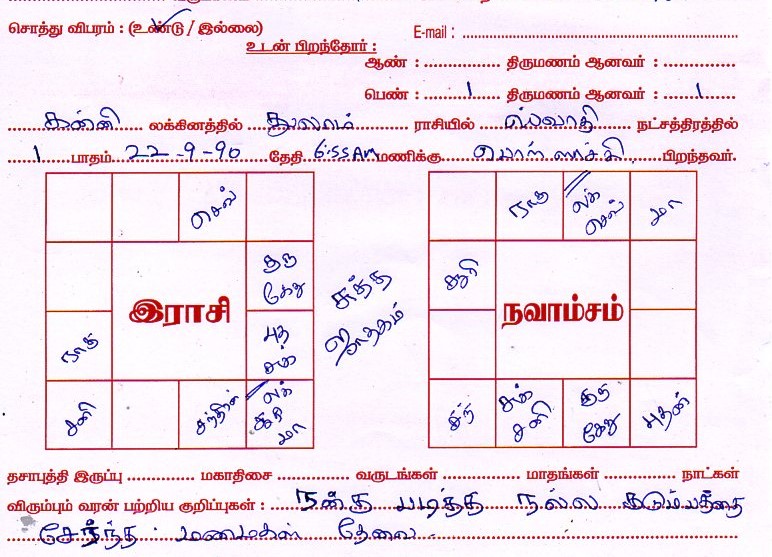 சொத்து விபரம் : (உண்டு / இல்லை)
E-mail :
உடன் பிறந்தோர் :
ஆண் : திருமணம் ஆனவர் :
பெண் : 1 திருமணம் ஆனவர் : 1
கன்னி லக்கினத்தில் துலாம் ராசியில் ஸ்வாதி நட்சத்திரத்தில்
1 பாதம் 22-9-90 தேதி 6:55 AM மணிக்கு பிறந்தவர்.
செவ்
குரு
கேது
ராகு
புத
சுக்
சனி
சந்திரன்
லக்
சூரி
மா
இராசி
சுத்த
ஜாதகம்
ராகு
லக்
செவ்
மா
சூரி
நவாம்சம்
சந்
சுக்
சனி
குரு
கேது
புதன்
தசாபுத்தி இருப்பு மகாதிசை வருடங்கள் மாதங்கள் நாட்கள்
விரும்பும் வரன் பற்றிய குறிப்புகள் : நன்கு படித்த நல்ல குடும்பத்தை
சேர்ந்த மணமகள் தேவை.